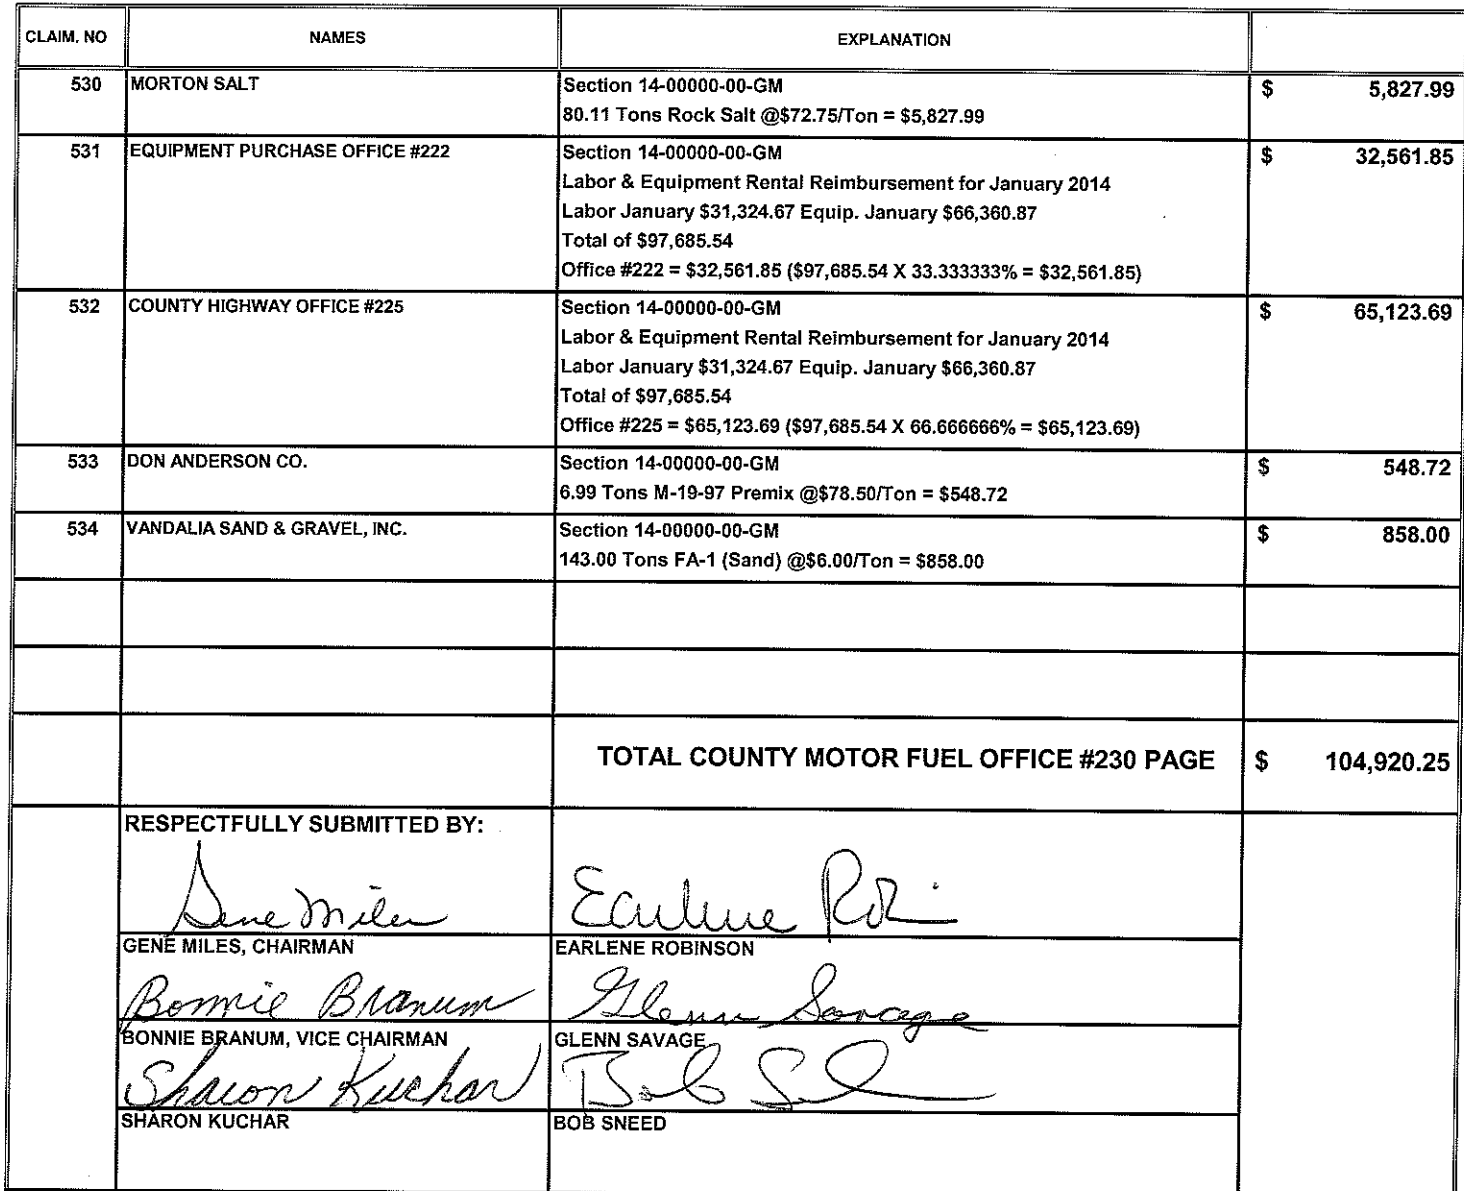 CLAIM. NO NAMES EXPLANATION
530 MORTON SALT Section 14-00000-00-GM $ 5,827.99
80.11 Tons Rock Salt @$72.75/Ton = $5,827.99
531 EQUIPMENT PURCHASE OFFICE #222 Section 14-00000-00-GM $ 32,561.85
Labor & Equipment Rental Reimbursement for January 2014
Labor January $31,324.67 Equip. January $66,360.87
Total of $97,685.54
Office #222 = $32,561.85 ($97,685.54 X 33.333333% = $32,561.85)
532 COUNTY HIGHWAY OFFICE #225 Section 14-00000-00-GM $ 65,123.69
Labor & Equipment Rental Reimbursement for January 2014
Labor January $31,324.67 Equip. January $66,360.87
Total of $97,685.54
Office #225 = $65,123.69 ($97,685.54 X 66.666666% = $65,123.69)
533 DON ANDERSON CO. Section 14-00000-00-GM $ 548.72
6.99 Tons M-19-97 Premix @$78.50/Ton = $548.72
534 VANDALIA SAND & GRAVEL, INC. Section 14-00000-00-GM $ 858.00
143.00 Tons FA-1 (Sand) @$6.00/Ton = $858.00
TOTAL COUNTY MOTOR FUEL OFFICE #230 PAGE $ 104,920.25
RESPECTFULLY SUBMITTED BY:
Gene Miles Earlene
GENE MILES, CHAIRMAN EARLENE ROBINSON
Bonnie Branum Glenn Savage
BONNIE BRANUM, VICE CHAIRMAN GLENN SAVAGE
Sharon Kuchar Bob
SHARON KUCHAR BOB SNEED